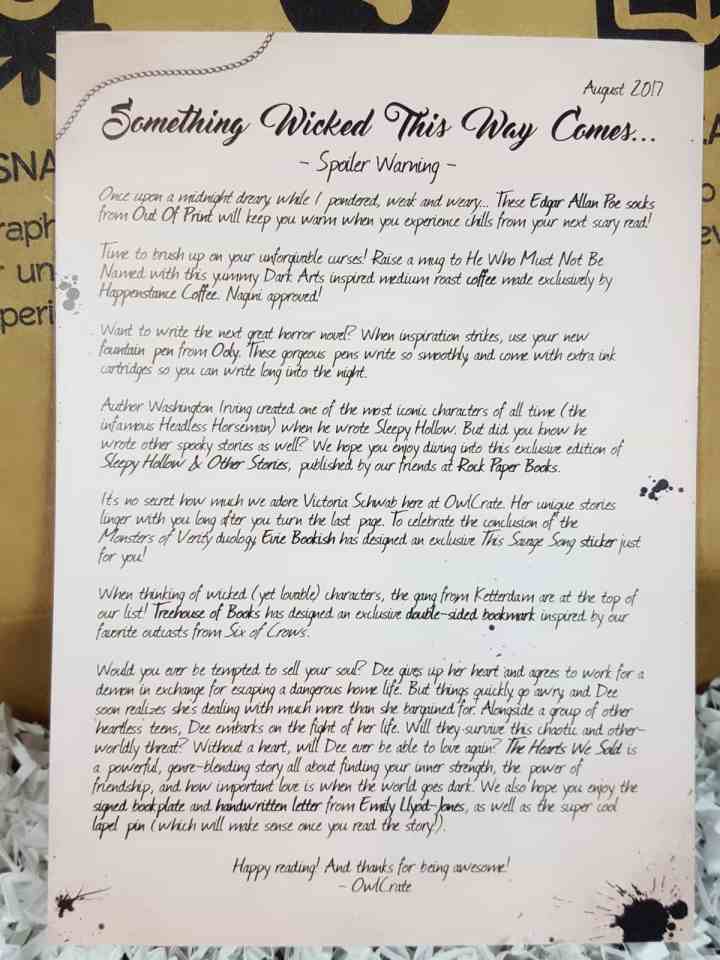 August 2017
Something Wicked This Way Comes...
- Spoiler Warning -
Once upon a midnight dreary, while I pondered, weak and weary... These Edgar Allan Poe socks
from Out Of Print will keep you warm when you experience chills from your next scary read!
Time to brush up on your unforgivable curses! Raise a mug to He Who Must Not Be
Named with this yummy Dark Arts inspired medium roast coffee made exclusively by
Happenstance Coffee. Nagini approved!
Want to write the next great horror novel? When inspiration strikes, use your new
fountain pen from Ooly. These gorgeous pens write so smoothly, and come with extra ink
cartridges so you can write long into the night.
Author Washington Irving created one of the most iconic characters of all time (the
infamous Headless Horseman) when he wrote Sleepy Hollow. But did you know he
wrote other spooky stories as well? We hope you enjoy diving into this exclusive edition of
Sleepy Hollow & Other Stories, published by our friends at Rock Paper Books.
It's no secret how much we adore Victoria Schwab here at OwlCrate. Her unique stories
linger with you long after you turn the last page. To celebrate the conclusion of the
Monsters of Verity duology, Evie Bookish has designed an exclusive This Savage Song sticker just
for you!
When thinking of wicked (yet lovable) characters, the gang from Ketterdam are at the top of
our list! Treehouse of Books has designed an exclusive double-sided bookmark inspired by our
favorite outcasts from Six of Crows.
Would you ever be tempted to sell your soul? Dee gives up her heart and agrees to work for a
demon in exchange for escaping a dangerous home life. But things quickly go awry, and Dee
soon realizes she's dealing with much more than she bargained for. Alongside a group of other
heartless teens, Dee embarks on the fight of her life. Will they survive this chaotic and other-
worldly threat? Without a heart, will Dee ever be able to love again? The Hearts We Sold is
a powerful, genre-blending story all about finding your inner strength, the power of
friendship, and how important love is when the world goes dark. We also hope you enjoy the
signed bookplate and handwritten letter from Emily Llyod-Jones, as well as the super cool
lapel pin (which will make sense once you read the story!).
Happy reading! And thanks for being awesome!
- OwlCrate
SNA
raph
un
peri